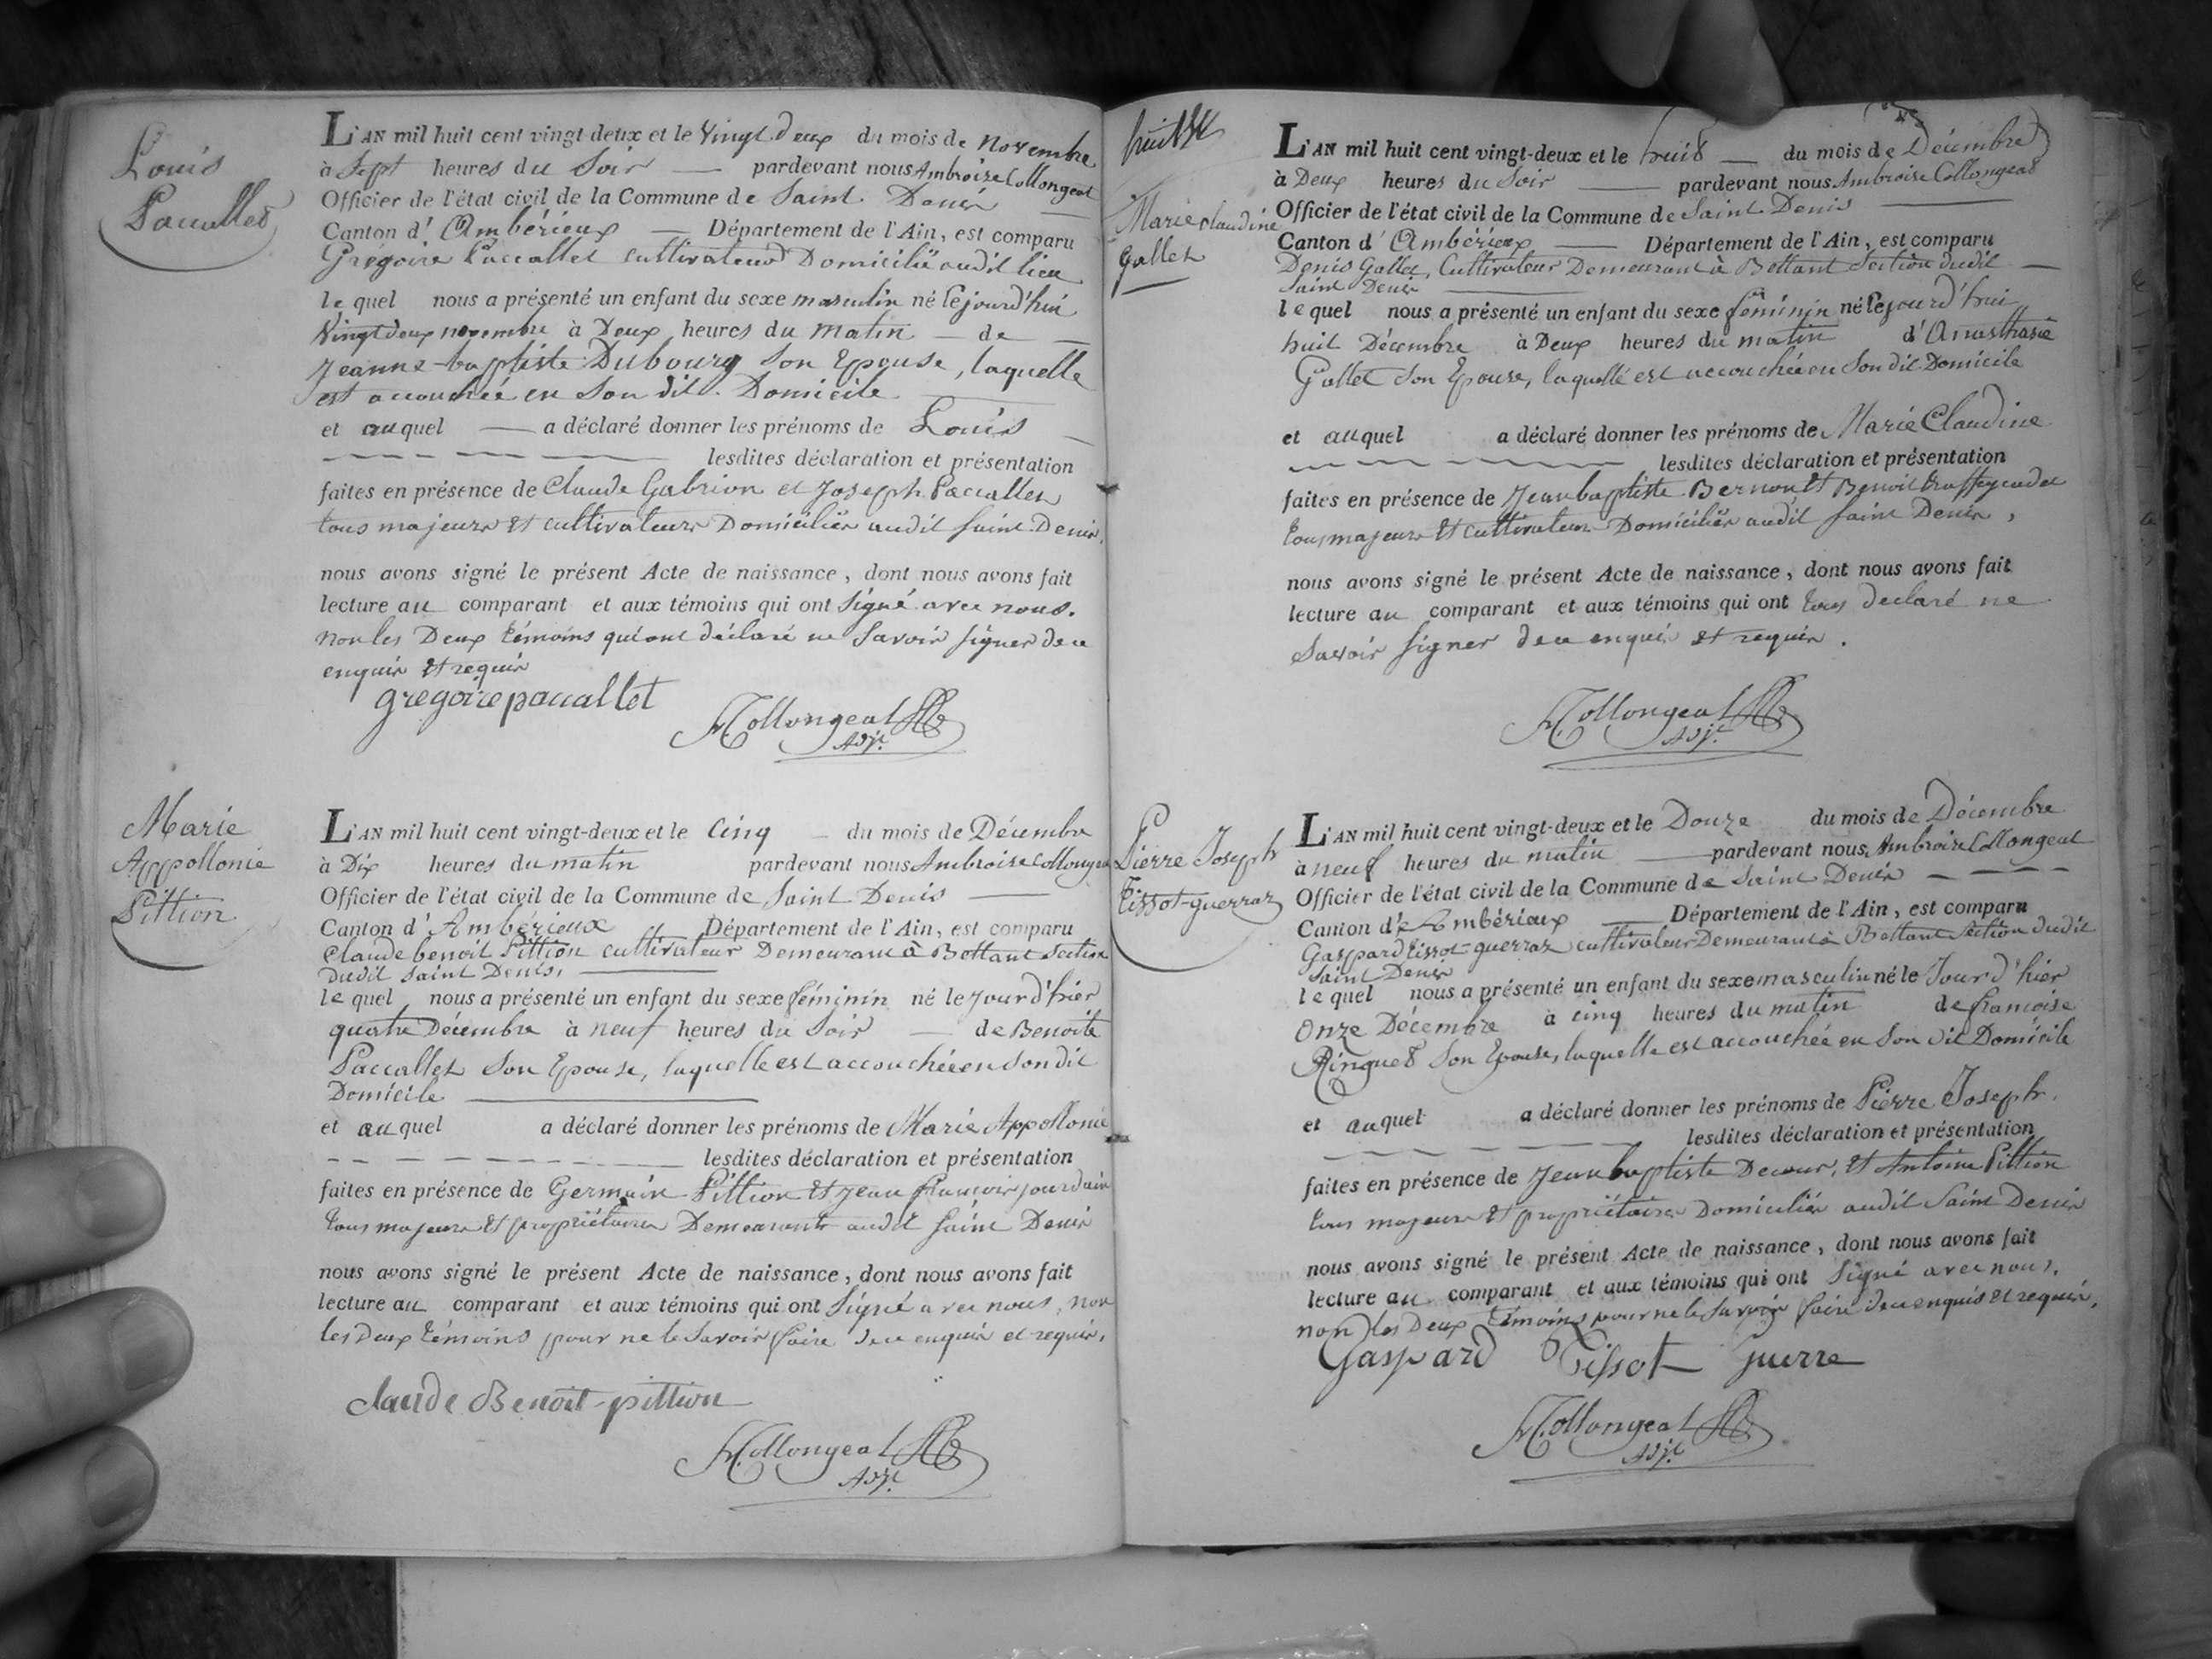 Louis
Paccallet
L'AN mil huit cent vingt-deux et le Vingt deux du mois de Novembre
à Sept heures du Soir — pardevant nous Ambroise Collongeat
Officier de l'état civil de la Commune de Saint Denis —
Canton d'Ambérieux — Département de l'Ain, est comparu
Grégoire Paccallet cultivateur Domicilié audit lieu
lequel nous a présenté un enfant du sexe masculin né Cejourd'hui
Vingt deux novembre à Deux heures du matin — de —
Jeanne-baptiste Dubourg Son Epouse, laquelle
est accouchée en Son dit Domicile
et auquel — a déclaré donner les prénoms de Louis —
lesdites déclaration et présentation
faites en présence de Claude Gabrion et Joseph Paccallet
tous majeurs et cultivateurs Domiciliés audit Saint Denis,
nous avons signé le présent Acte de naissance, dont nous avons fait
lecture au comparant et aux témoins qui ont Signé avec nous.
Non les Deux témoins qui ont déclaré ne Savoir signer de ce
enquis et requis
gregoire paccallet
A. Collongeat
Adjt.
Marie
Appollonie
Pittion
L'AN mil huit cent vingt-deux et le Cinq — du mois de Décembre
à Dix heures du matin pardevant nous Ambroise Collongeat
Officier de l'état civil de la Commune de Saint Denis —
Canton d'Ambérieux Département de l'Ain, est comparu
Claude benoit Pittion cultivateur Demeurant à Bettant Section
dudit Saint Denis, —
lequel nous a présenté un enfant du sexe féminin né le jour d'hier
quatre Décembre à neuf heures du Soir — de Benoite
Paccallet Son Epouse, laquelle est accouchée en Son dit
Domicile —
et auquel a déclaré donner les prénoms de Marie Appollonie
lesdites déclaration et présentation
faites en présence de Germain Pittion et Jean françois jourdain
tous majeurs et propriétaires Demeurants audit Saint Denis
nous avons signé le présent Acte de naissance, dont nous avons fait
lecture au comparant et aux témoins qui ont Signé avec nous, non
les Deux témoins pour ne le Savoir faire de ce enquis et requis,
claude Benoit pittion
A. Collongeat
Adjt.
Marie Claudine
Gallet
L'AN mil huit cent vingt-deux et le huit — du mois de Décembre
à Deux heures du Soir — pardevant nous Ambroise Collongeat
Officier de l'état civil de la Commune de Saint Denis —
Canton d'Ambérieux — Département de l'Ain, est comparu
Denis Gallet, Cultivateur Demeurant à Bettant Section dudit —
Saint Denis —
lequel nous a présenté un enfant du sexe féminin né Cejourd'hui
huit Décembre à Deux heures du matin d'Anasthasie
Gallet Son Epouse, laquelle est accouchée en Son dit Domicile
et auquel a déclaré donner les prénoms de Marie Claudine
lesdites déclaration et présentation
faites en présence de Jean baptiste Bernon et Benoit
tous majeurs et cultivateurs Domiciliés audit Saint Denis,
nous avons signé le présent Acte de naissance, dont nous avons fait
lecture au comparant et aux témoins qui ont tous declaré ne
Savoir signer de ce enquis et requis.
A. Collongeat
Adjt.
Pierre Joseph
Tissot-guerraz
L'AN mil huit cent vingt-deux et le Douze du mois de Décembre
à neuf heures du matin — pardevant nous Ambroise Collongeat
Officier de l'état civil de la Commune de Saint Denis — — —
Canton d'Ambérieux — Département de l'Ain, est comparu
Gaspard tissot-guerraz cultivateur Demeurant à Bettant Section dudit
Saint Denis
lequel nous a présenté un enfant du sexe masculin né le Jour d'hier
Onze Décembre à cinq heures du matin de françoise
Ringuet Son Epouse, laquelle est accouchée en Son dit Domicile
et auquel a déclaré donner les prénoms de Pierre Joseph.
lesdites déclaration et présentation
faites en présence de Jean baptiste Decour, et Antoine Pittion
tous majeurs et propriétaires Domiciliés audit Saint Denis
nous avons signé le présent Acte de naissance, dont nous avons fait
lecture au comparant et aux témoins qui ont Signé avec nous,
non les Deux témoins pour ne le Savoir faire de ce enquis et requis,
Gaspard Tissot Guerre
A. Collongeat
Adjt.